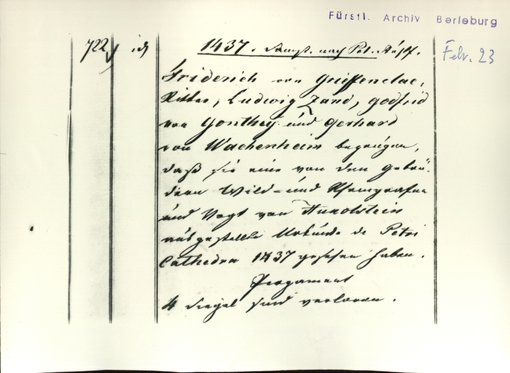 Fürstl. Archiv Berleburg
Febr. 23
722 1437. Samst. nach Pet.
Friderich von Greiffenclae,
Ritter, Ludwig Zand, Godfrid
von Gonthey und Gerhard
von Wachenheim bezeugen,
daß sie eine von den Gebrü-
dern Wild- und Rheingrafen
und Vogt von Hunolstein
ausgestellte Urkunde de Petri
Cathedra 1437 gesehen haben.
Pergament
4 Siegel sind verloren.